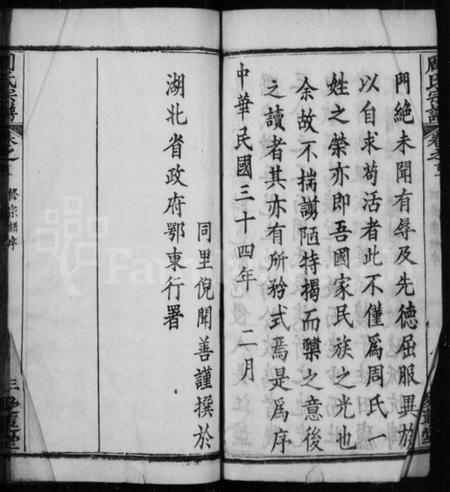 門絶未聞有辱及先德屈服異於
以自求苟活者此不僅爲周氏一
姓之榮亦即吾國家民族之光也
余故不揣謭陋特揭而櫫之意後
之讀者其亦有所矜式焉是爲序
中華民國三十四年 二月
同里倪聞善謹撰於
湖北省政府鄂東行署
周氏宗譜
卷之
修宗譜序
三
周氏宗譜
卷之